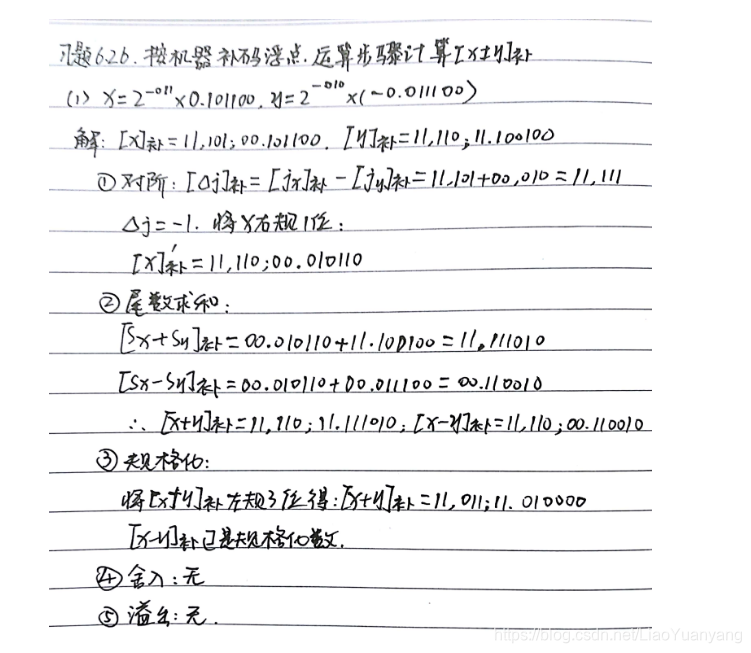 习题6.26. 按机器补码浮点运算步骤计算[x±y]补
(1) x=2^-011×0.101100, y=2^-010×(-0.011100)
解: [x]补=11,101;00.101100, [y]补=11,110;11.100100
①对阶: [Δj]补=[jx]补-[jy]补=11,101+00,010=11,111
Δj=-1. 将X右规1位:
[x]'补=11,110;00.010110
②尾数求和:
[Sx+Sy]补=00.010110+11.100100=11.111010
[Sx-Sy]补=00.010110+00.011100=00.110010
∴ [x+y]补=11,110;11.111010; [x-y]补=11,110;00.110010
③规格化:
将[x+y]补左规3位得:[x+y]补=11,011;11.010000
[x-y]补已是规格化数.
④舍入:无
⑤溢出:无.
https://blog.csdn.net/LiaoYuanyang